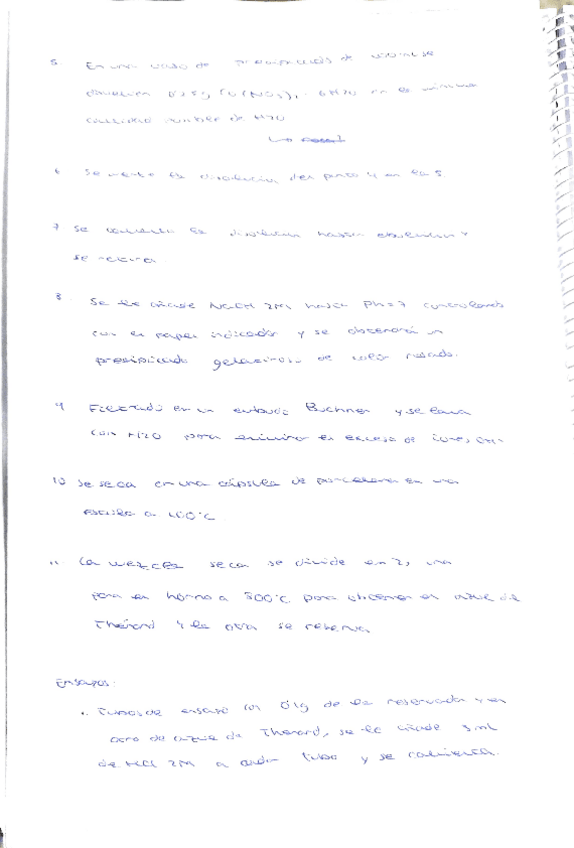 5. En un vaso de precipitados de 50 mL se
disuelven 0'25g Co(NO3)2 · 6H2O en la mínima
cantidad de H2O
6 Se vierte la disolución del punto 4 en la 5.
7 Se calienta la disolución hasta ebullición y
se retira
8. Se le añade NaOH 2M hasta pH=7 controlando
con el papel indicador y se obtendrá un
precipitado gelatinoso de color rosado.
9 Filtrado en un embudo Buchner y se lava
con H2O para eliminar el exceso de iones
10 Se seca en una cápsula de porcelana en una
estufa a 100°C
11 La mezcla seca se divide en 2, una
para en horno a 500°C para obtener el azul de
Thénard y la otra se reserva
Ensayos:
. Tubos de ensayo con 0'1g de la reservada y en
otro de azul de Thenard, se le añade 3 mL
de HCl 2M a cada tubo y se calienta.